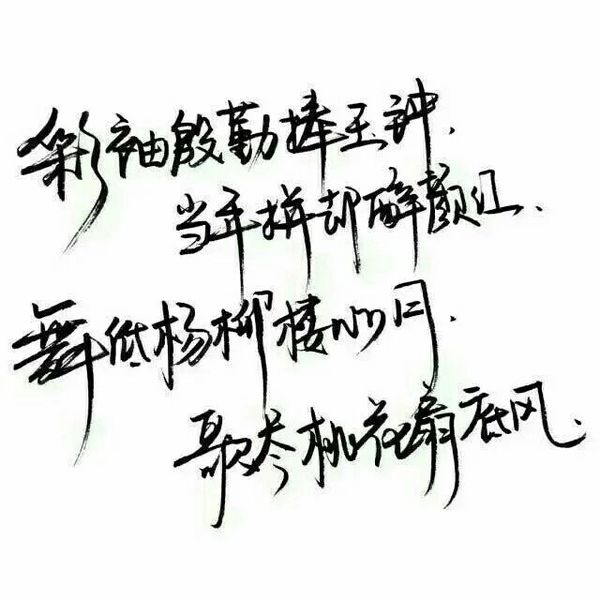 彩袖殷勤捧玉钟.
当年拼却醉颜红、
舞低杨柳楼心月.
歌尽桃花扇底风.